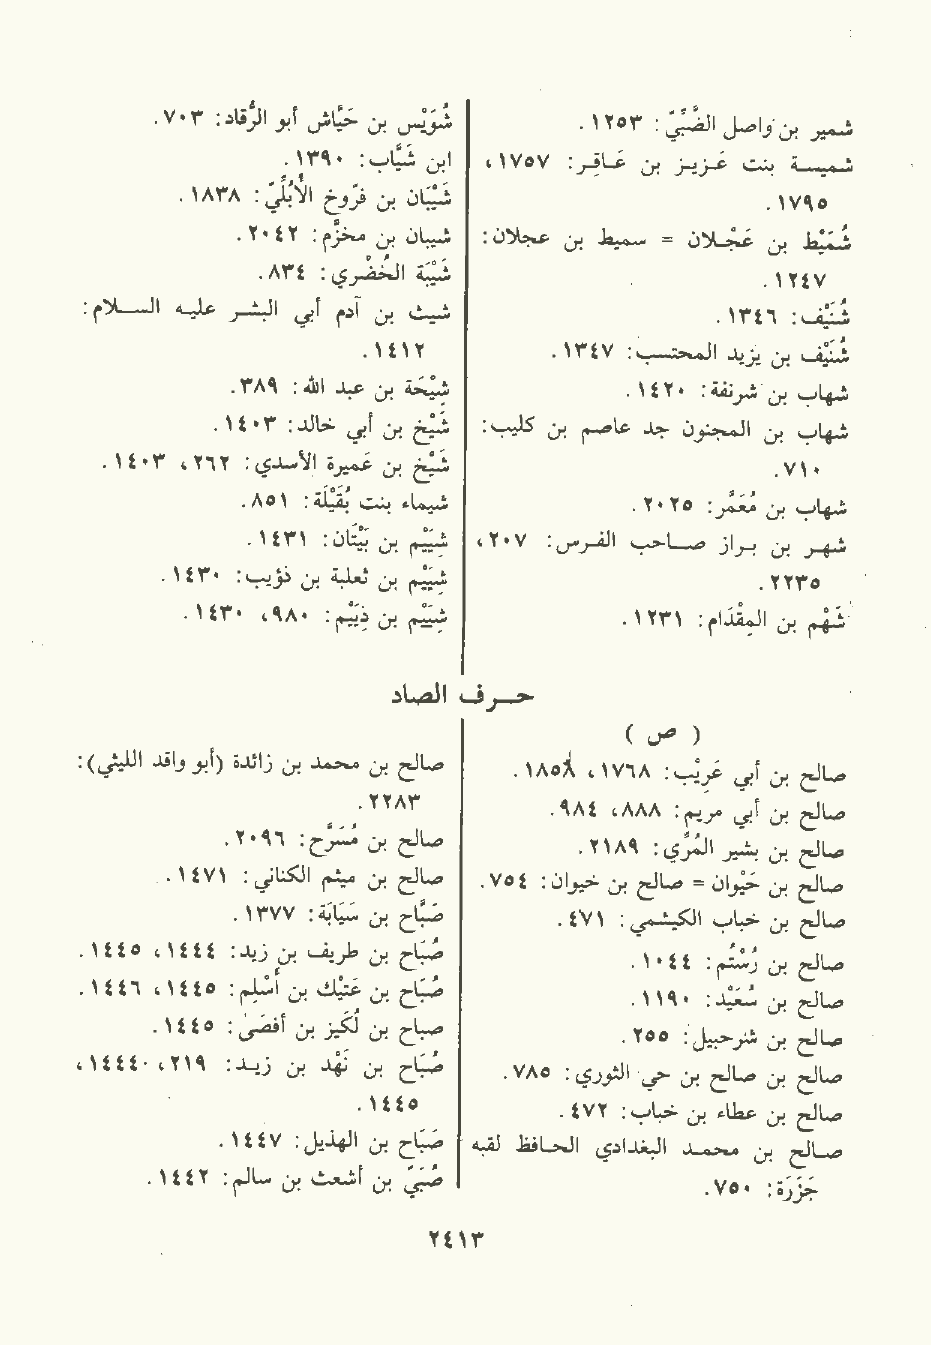 شمير بن واصل الضِّبِّيّ: ١٢٥٣.
شميسـة بنت عَـزيـز بن عَـاقِـر: ١٧٥٧،
١٧٩٥.
شُمَيْط بن عَجْـلان = سميط بن عجلان:
١٢٤٧.
شُنَيْف: ١٣٤٦.
شُنَيْف بن يزيد المحتسب: ١٣٤٧.
شهاب بن شرنفة: ١٤٢٠.
شهاب بن المجنون جد عاصم بن كليب:
٧١٠.
شهاب بن مُعَمَّر: ٢٠٢٥.
شهـر بن بـراز صـاحب الفـرس: ٢٠٧،
٢٢٣٥.
شَهْم بن المِقْدَام: ١٢٣١.
شُوَيْس بن حَيَّاش أبو الرُّقاد: ٧٠٣.
ابن شَيَّاب: ١٣٩٠.
شَيْبَان بن فرّوخ الأُبُلِّيّ: ١٨٣٨.
شيبان بن مخزَّم: ٢٠٤٢.
شَيْبَة الخُضْري: ٨٣٤.
شيـث بن آدم أبي البشـر عليـه السـلام:
١٤١٢.
شِيْحَة بن عبد الله: ٣٨٩.
شَيْخ بن أبي خالد: ١٤٠٣.
شَيْخ بن عَميرة الأسدي: ٢٦٢، ١٤٠٣.
شيماء بنت بُقَيْلَة: ٨٥١.
شِيَيْم بن بَيْتَان: ١٤٣١.
شِيَيْم بن ثعلبة بن ذؤيب: ١٤٣٠.
شِيَيْم بن ذِيَيْم: ٩٨٠، ١٤٣٠.
حـرف الصاد
( ص )
صالح بن أبي عَرِيْب: ١٧٦٨، ١٨٥٨.
صالح بن أبي مريم: ٨٨٨، ٩٨٤.
صالح بن بشير المُرِّي: ٢١٨٩.
صالح بن حَيْوان = صالح بن خيوان: ٧٥٤.
صالح بن خباب الكيشمي: ٤٧١.
صالح بن رُسْتُم: ١٠٤٤.
صالح بن سُعَيْد: ١١٩٠.
صالح بن شرحبيل: ٢٥٥.
صالح بن صالح بن حي الثوري: ٧٨٥.
صالح بن عطاء بن خباب: ٤٧٢.
صـالح بن محمـد البغـدادي الحـافظ لقبه
جَزَرَة: ٧٥٠.
صالح بن محمد بن زائدة (أبو واقد الليثي):
٢٢٨٣.
صالح بن مُسَرَّح: ٢٠٩٦.
صالح بن ميثم الكناني: ١٤٧١.
صَبَّاح بن سَيَابَة: ١٣٧٧.
صُبَاح بن طريف بن زيد: ١٤٤٤، ١٤٤٥.
صُبَاح بن عَتِيْك بن أَسْلِم: ١٤٤٥، ١٤٤٦.
صباح بن لُكَيز بن أفصَى: ١٤٤٥.
صُبَاح بن نَهْد بن زيـد: ٢١٩، ١٤٤٤٠،
١٤٤٥.
صَبَاح بن الهذيل: ١٤٤٧.
صُبَيّ بن أشعث بن سالم: ١٤٤٢.
٢٤١٣